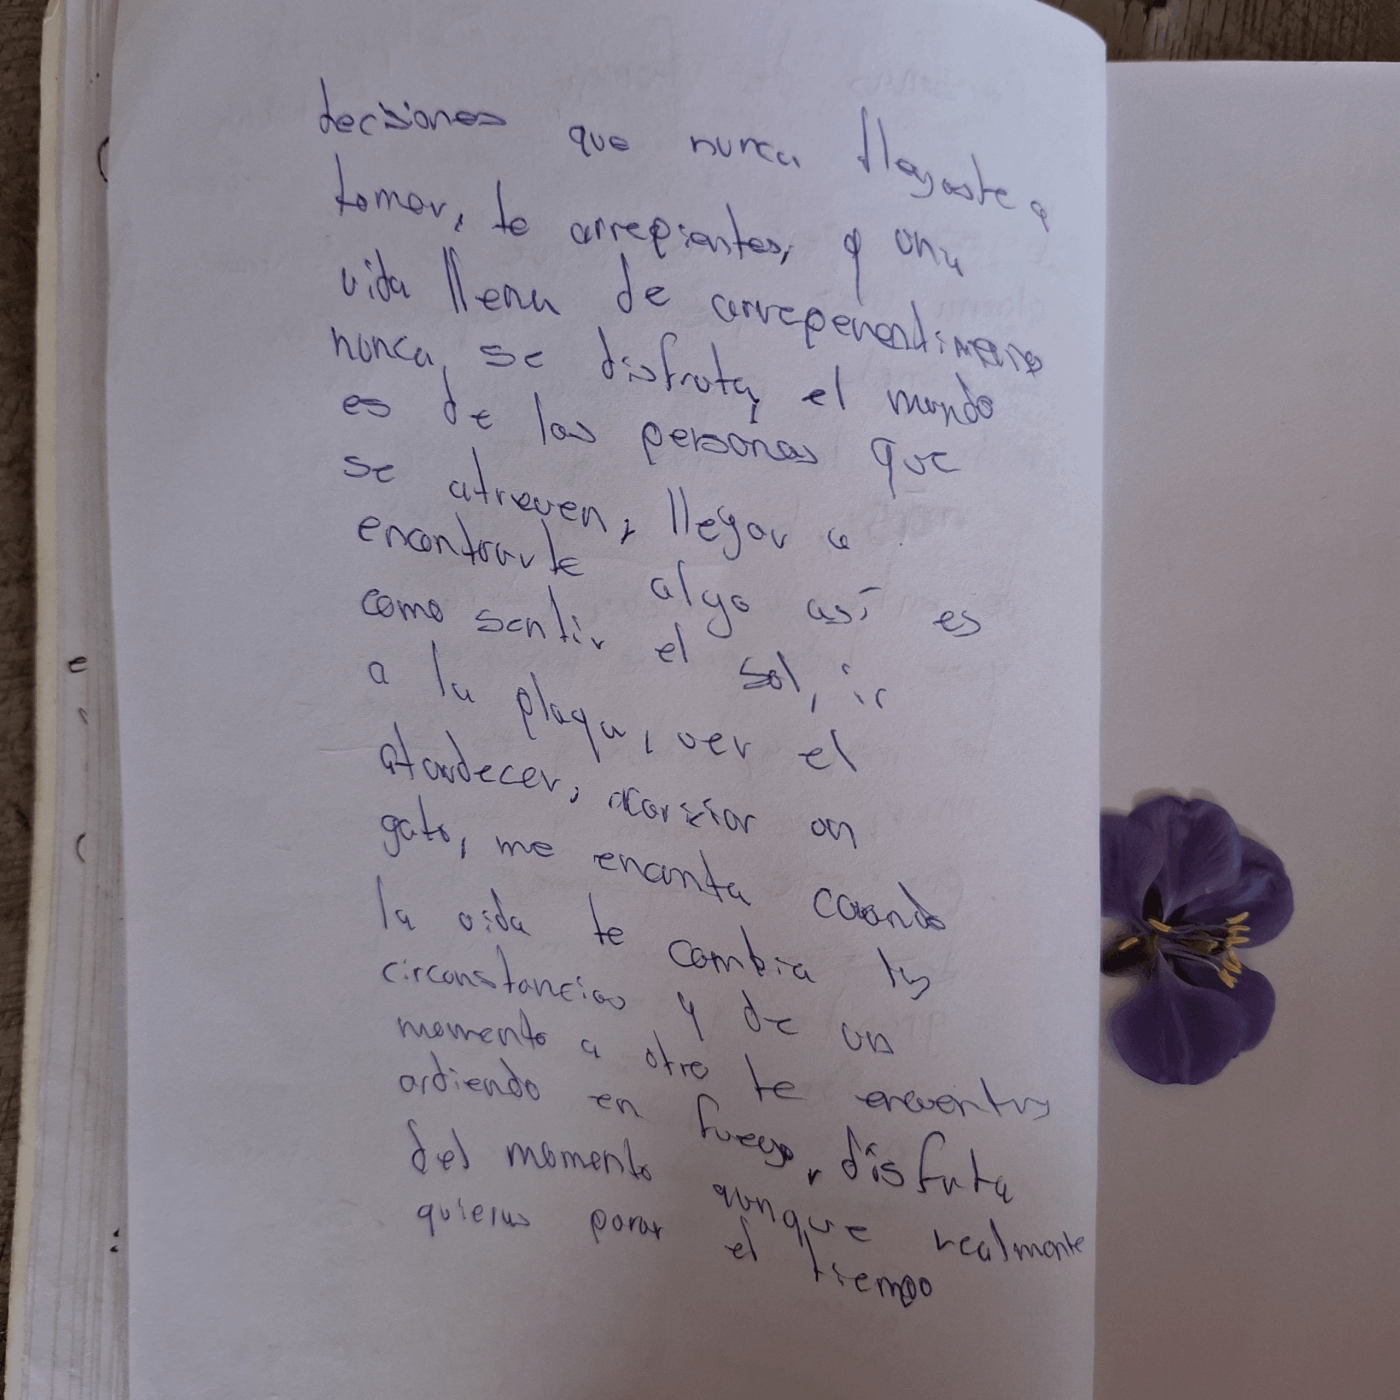 decisiones que nunca llegaste a
tomar, te arrepientes, y una
vida llena de
nunca se disfruta, el mundo
es de las personas que
se atreven, llegar a
encontrarte algo así es
como sentir el sol, ir
a la playa, ver el
atardecer, acarisiar un
gato, me encanta cuando
la vida te cambia tus
circunstancias y de un
momento a otro te encuentras
ardiendo en fuego, disfruta
del momento aunque realmente
quieras parar el tiempo